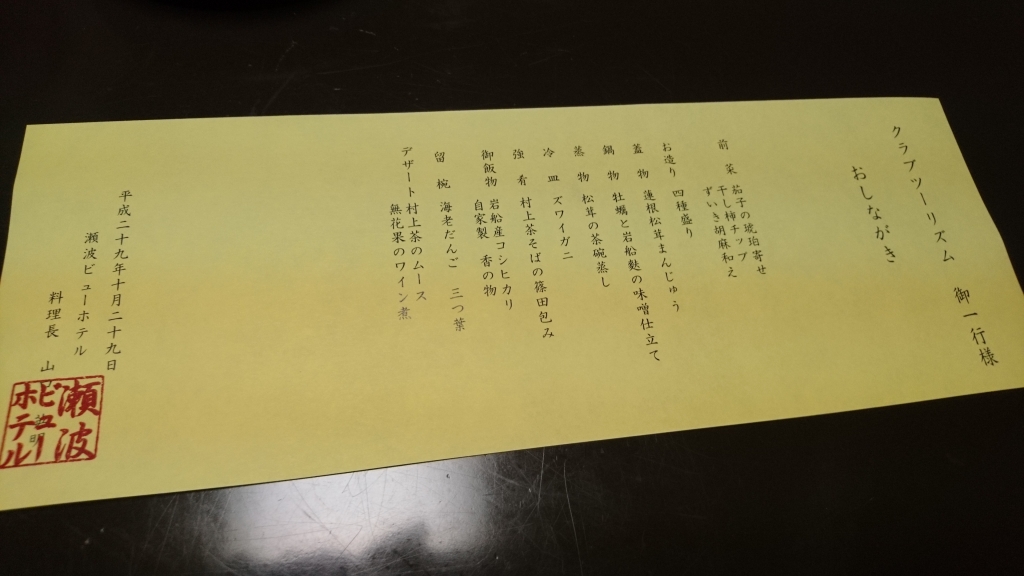 クラブツーリズム 御一行様
おしながき
前菜 茄子の琥珀寄せ
干し柿チップ
ずいき胡麻和え
お造り 四種盛り
蓋物 蓮根松茸まんじゅう
鍋物 牡蠣と岩船麩の味噌仕立て
蒸物 松茸の茶碗蒸し
冷皿 ズワイガニ
強肴 村上茶そばの篠田包み
御飯物 岩船産コシヒカリ
自家製 香の物
留椀 海老だんご 三つ葉
デザート 村上茶のムース
無花果のワイン煮
平成二十九年十月二十九日
瀬波ビューホテル
料理長 山
瀬波
ビュー
ホテル